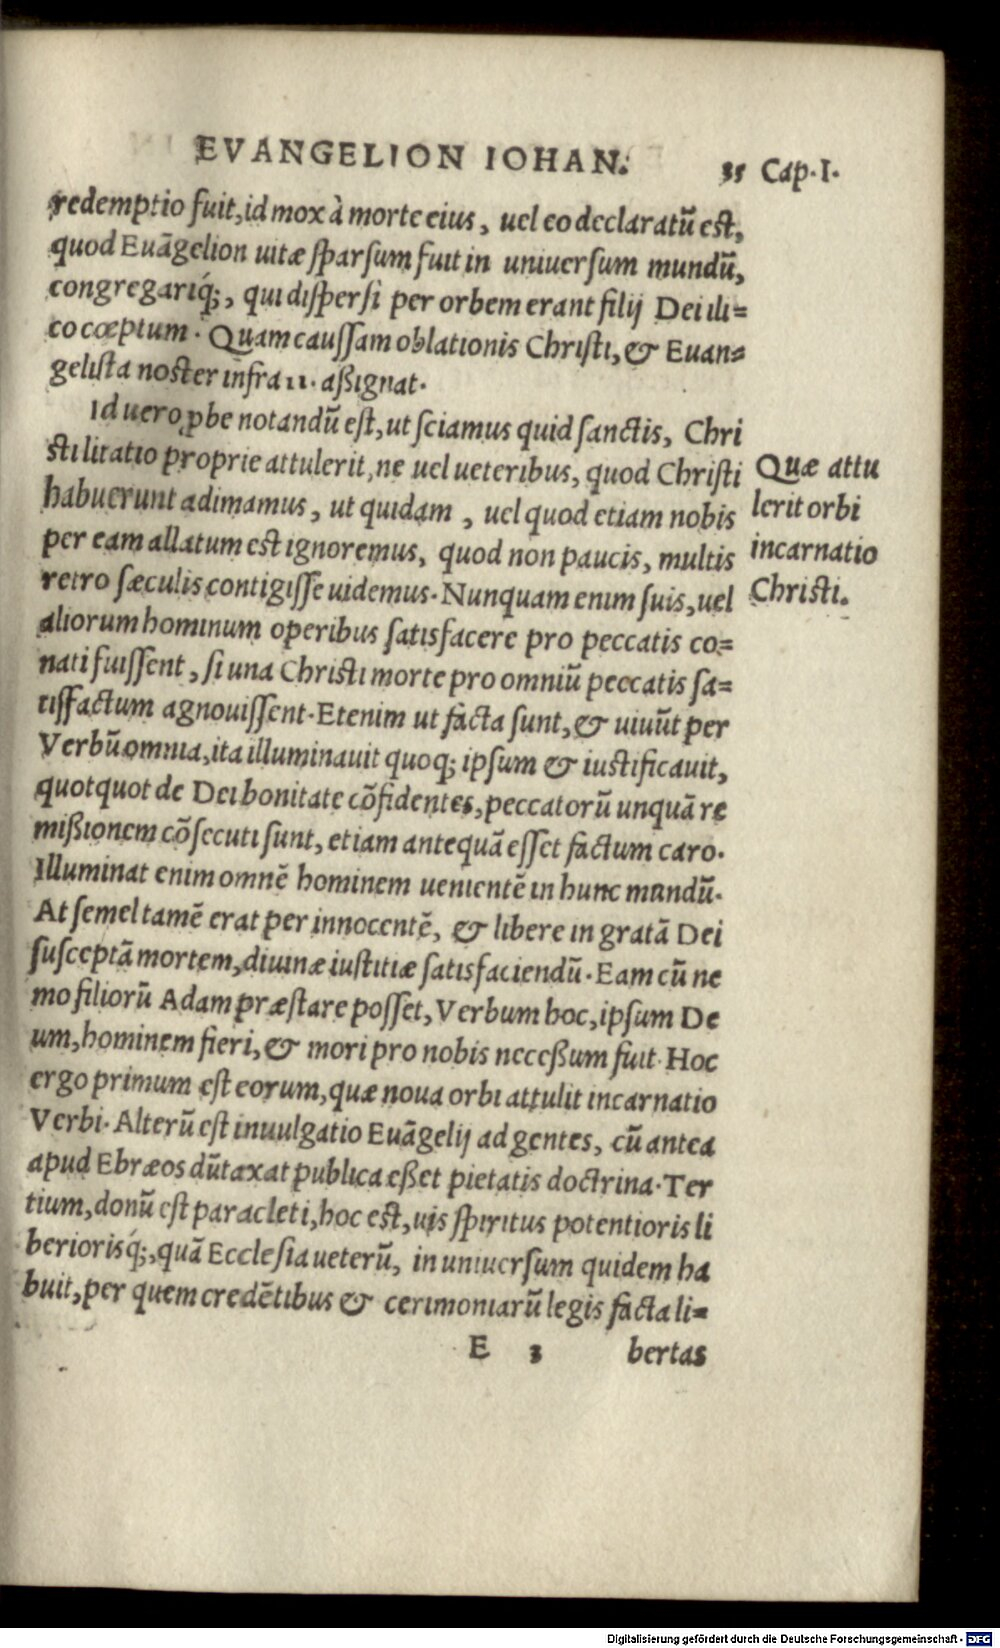 EVANGELION IOHAN.
35 Cap. I.
redemptio fuit, id mox à morte eius, uel eo declaratũ est,
quod Euãgelion uitæ sparsum fuit in uniuersum mundũ,
congregariq́;, qui dispersi per orbem erant filij Dei ili=
co cœptum. Quam caussam oblationis Christi, & Euan=
gelista noster infra 11. aßignat.
Id uero ꝓbe notandũ est, ut sciamus quid sanctis, Chri
sti litatio proprie attulerit, ne uel ueteribus, quod Christi
habuerunt adimamus, ut quidam, uel quod etiam nobis
per eam allatum est ignoremus, quod non paucis, multis
retro sæculis contigisse uidemus. Nunquam enim suis, uel
aliorum hominum operibus satisfacere pro peccatis co=
nati fuissent, si una Christi morte pro omniũ peccatis sa=
tisfactum agnouissent. Etenim ut facta sunt, & uiuũt per
Verbũ omnia, ita illuminauit quoq; ipsum & iustificauit,
quotquot de Dei bonitate cõfidentes, peccatorũ unquã re
mißionem cõsecuti sunt, etiam antequã esset factum caro.
Illuminat enim omnẽ hominem uenientẽ in hunc mundũ.
At semel tamẽ erat per innocentẽ, & libere in gratã Dei
susceptã mortem, diuinæ iustitiæ satisfaciendũ. Eam cũ ne
mo filiorũ Adam præstare posset, Verbum hoc, ipsum De
um, hominem fieri, & mori pro nobis neceßum fuit. Hoc
ergo primum est eorum, quæ noua orbi attulit incarnatio
Verbi. Alterũ est inuulgatio Euãgelij ad gentes, cũ antea
apud Ebræos dũtaxat publica eßet pietatis doctrina. Ter
tium, donũ est paracleti, hoc est, uis spiritus potentioris li
beriorisq́;, quã Ecclesia ueterũ, in uniuersum quidem ha
buit, per quem credẽtibus & cerimoniarũ legis facta li=
E 3 bertas
Quæ attu
lerit orbi
incarnatio
Christi.
Digitalisierung gefördert durch die Deutsche Forschungsgemeinschaft - DFG